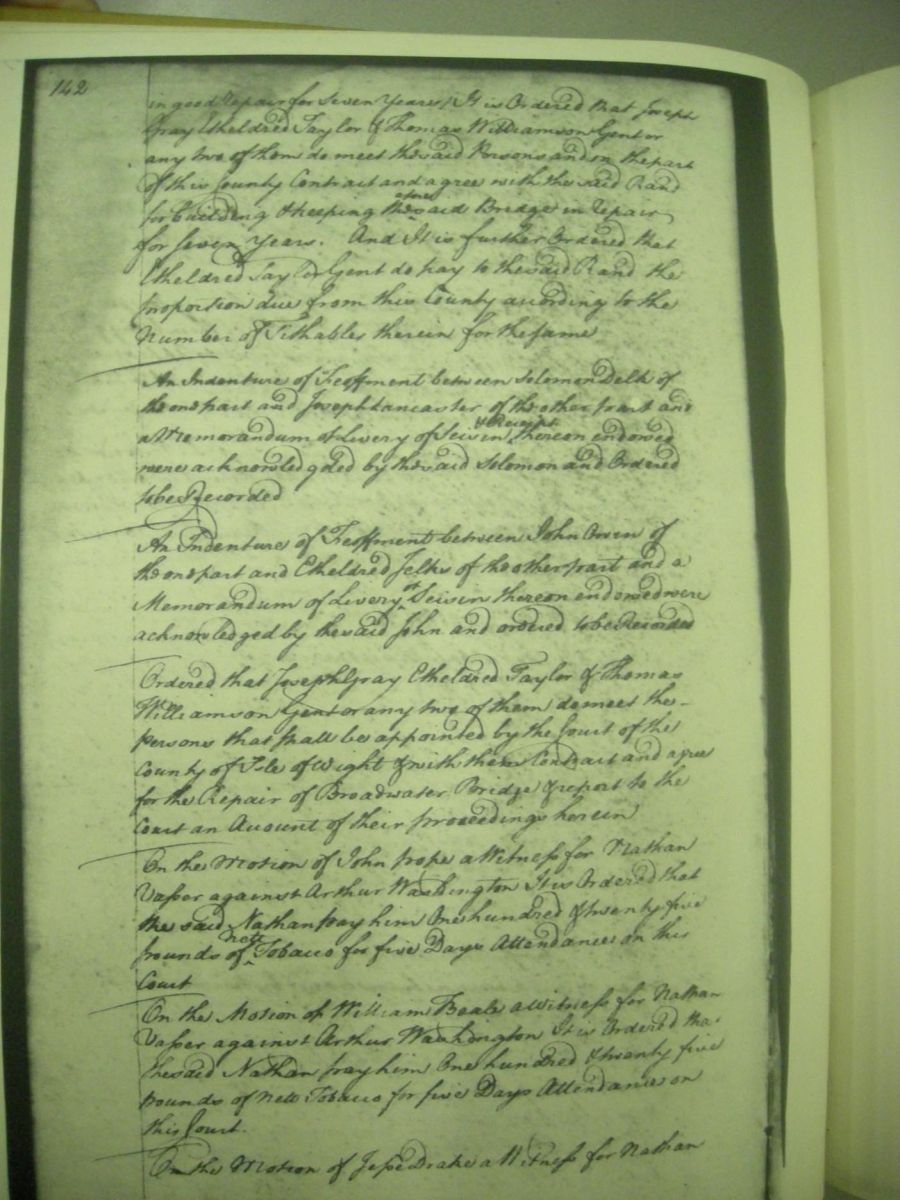 142
in good Repair for Seven Years, It is Ordered that Joseph
Gray Etheldred Taylor & Thomas Williamson Gent or
any two of them do meet the said Persons and on the part
of this County Contract and agree with the said Rand
for building & keeping the said Bridge in repair
for seven Years. And It is further Ordered that
Etheldred Taylor Gent do pay to the said Rand the
proportion due from this County according to the
Number of Tithables therein for the same
An Indenture of Feoffment between Solomon Delk of
the one part and Joseph Lancaster of the other part and
a Memorandum of Livery of Seisin & Receipt thereon endorsed
were acknowledged by the said Solomon and Ordered
to be Recorded
An Indenture of Feoffment between John Owen of
the one part and Etheldred Jelks of the other part and a
Memorandum of Livery of Seisin thereon endorsed were
acknowledged by the said John and ordered to be Recorded
Ordered that Joseph Gray Etheldred Taylor & Thomas
Williamson Gent or any two of them do meet the
Persons that shall be appointed by the Court of the
County of Isle of Wight & with them Contract and agree
for the Repair of Broadwater Bridge & report to the
Court an Account of their proceedings herein
On the Motion of John pope a Witness for Nathan
Vasser against Arthur Washington It is Ordered that
the said Nathan pay him One hundred & twenty five
pounds of nett Tobacco for five Days Attendance on this
Court
On the Motion of William Beale a Witness for Nathan
Vasser against Arthur Washington It is Ordered tha
the said Nathan pay him One hundred & twenty five
pounds of nett Tobacco for five Days Attendance on
this Court.
On the Motion of Jesse Drake a Witness for Nathan